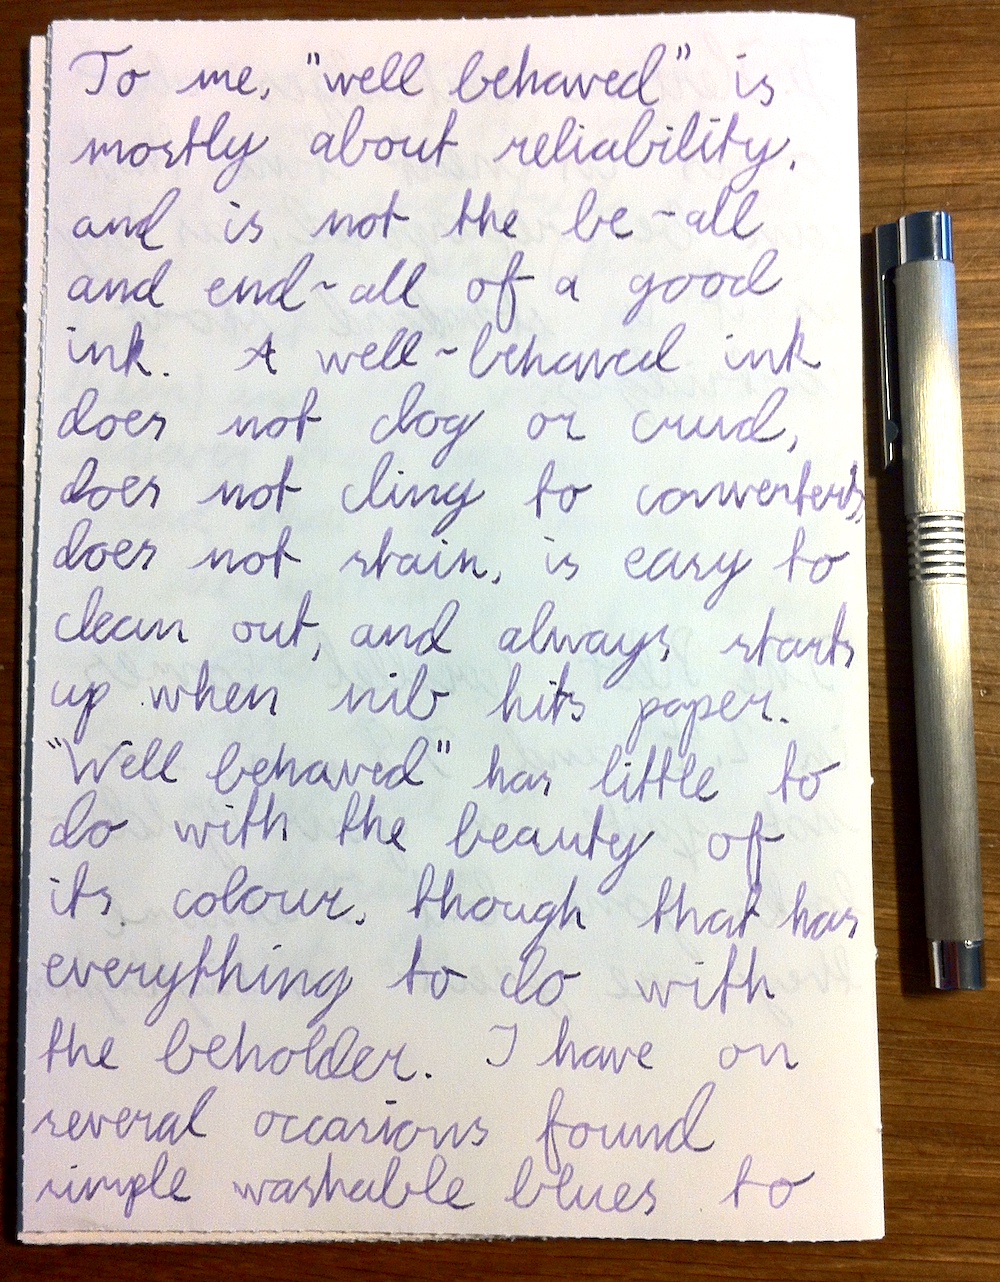 To me, "well behaved" is
mostly about reliability,
and is not the be-all
and end-all of a good
ink. A well-behaved ink
does not clog or crud,
does not cling to converters,
does not stain, is easy to
clean out, and always starts
up when nib hits paper.
"Well behaved" has little to
do with the beauty of
its colour, though that has
everything to do with
the beholder. I have on
several occasions found
simple washable blues to